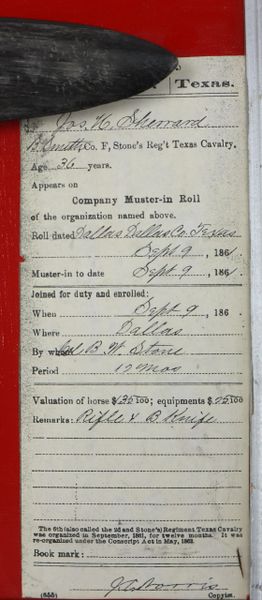 Texas.
Jos. H. Sherrard
B. Smith, Co. F, Stone's Reg't Texas Cavalry.
Age 36 years.
Appears on
Company Muster-in Roll
of the organization named above.
Roll dated Dallas, Dallas Co. Texas
Sept 9, 1861.
Muster-in to date Sept 9, 1861.
Joined for duty and enrolled:
When Sept 9, 186
Where Dallas
By whom Col. B. W. Stone
Period 12 mos
Valuation of horse $ 100; equipments $ 25/100
Remarks: Rifle & B Knife
The 6th (also called the 2d and Stone's) Regiment Texas Cavalry
was organized in September, 1861, for twelve months. It was
re-organized under the Conscript Act in May, 1862.
Book mark:
Copyist.